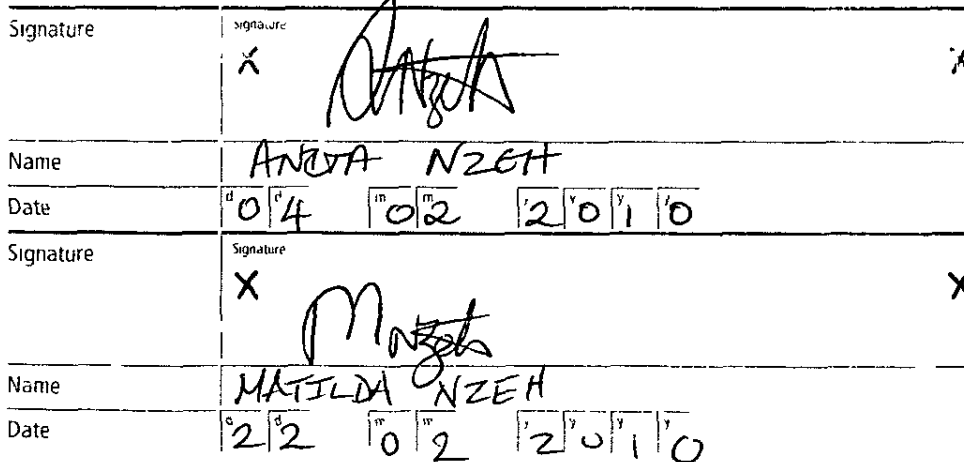 Signature
Signature
X X
Name NZEH
Date d0 d4 m0 m2 y2 y0 y1 y0
Signature
Signature
X X
M Nzeh
Name MATILDA NZEH
Date d2 d2 m0 m2 y2 y0 y1 y0